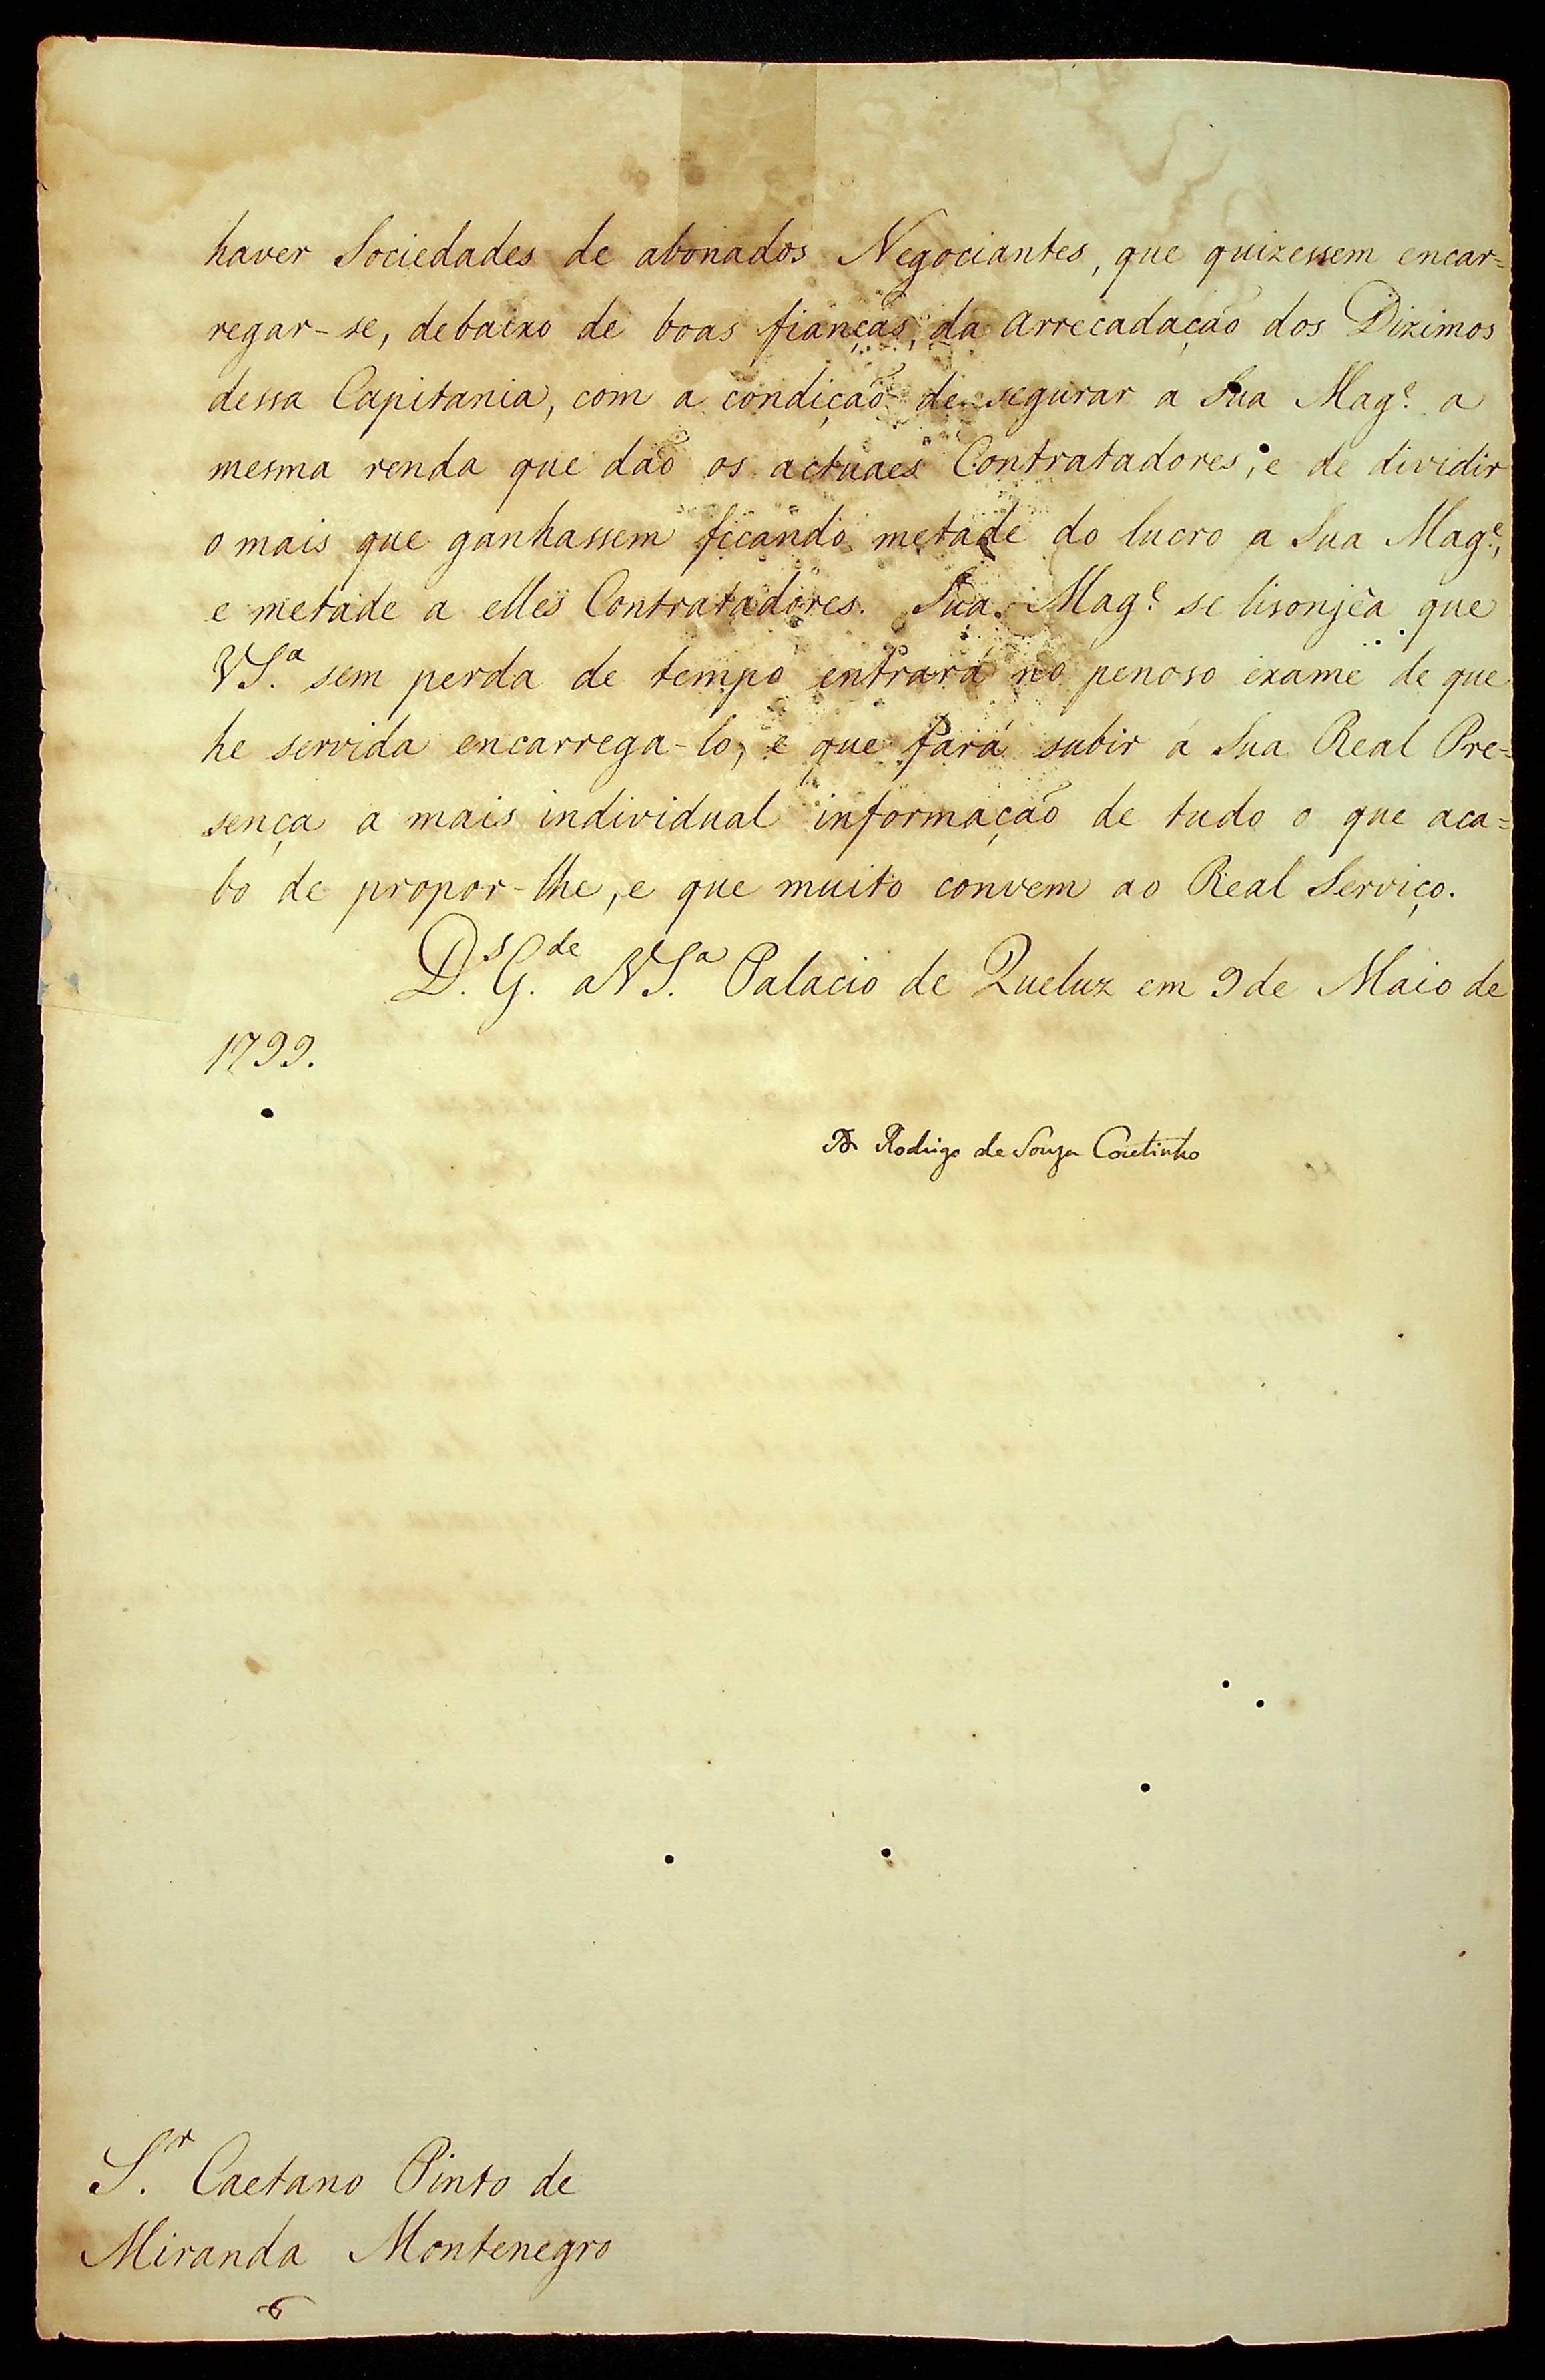 haver Sociedades de abonados Negociantes, que quizessem encar=
regar-se, debaixo de boas fianças, da arrecadação dos Dizimos
dessa Capitania, com a condição de segurar a Sua Mag.e a
mesma renda que dão os actuaes Contratadores, e de dividir
o mais que ganhassem ficando metade do lucro a Sua Mag.e,
e metade a elles Contratadores. Sua Mag.e se lisonjêa que
VS.a sem perda de tempo entrará no penoso exame de que
he servida encarrega-lo, e que fará subir á Sua Real Pre=
sença a mais individual informação de tudo o que aca=
bo de propor-lhe, e que muito convem ao Real Serviço.
D.s G.de a VS.a Palacio de Queluz em 9 de Maio de
1799.
D. Rodrigo de Souza Coutinho
S.r Caetano Pinto de
Miranda Montenegro